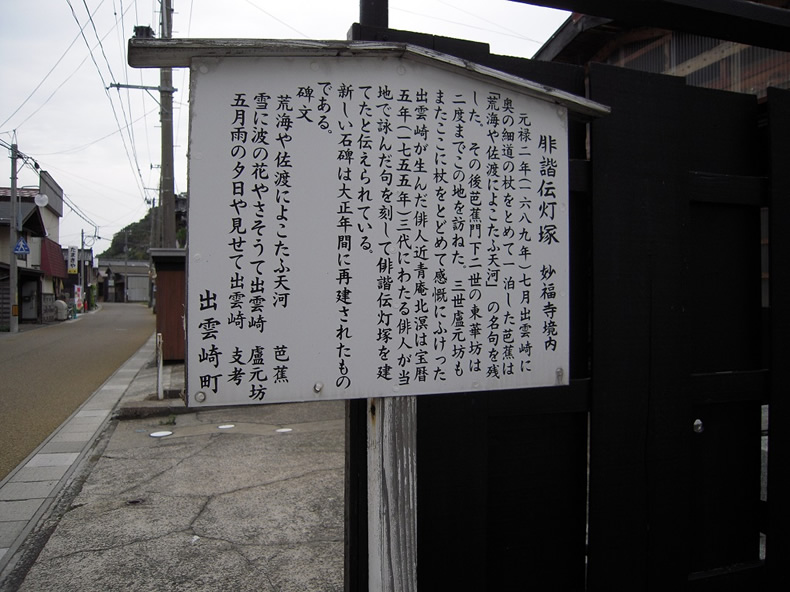 俳諧伝灯塚　妙福寺境内
元禄二年(一六八九年)七月出雲崎に
奥の細道の杖をとめて一泊した芭蕉は
「荒海や佐渡によこたふ天河」の名句を残
した。その後芭蕉門下二世の東華坊は
二度までこの地を訪ねた。三世盧元坊も
またここに杖をとどめて感慨にふけった
出雲崎が生んだ俳人近青庵北溟は宝暦
五年(一七五五年)三代にわたる俳人が当
地で詠んだ句を刻して俳諧伝灯塚を建
てたと伝えられている。
新しい石碑は大正年間に再建されたもの
である。
碑文
荒海や佐渡によこたふ天河　芭蕉
雪に波の花やさそうて出雲崎　盧元坊
五月雨の夕日や見せて出雲崎　支考
出雲崎町